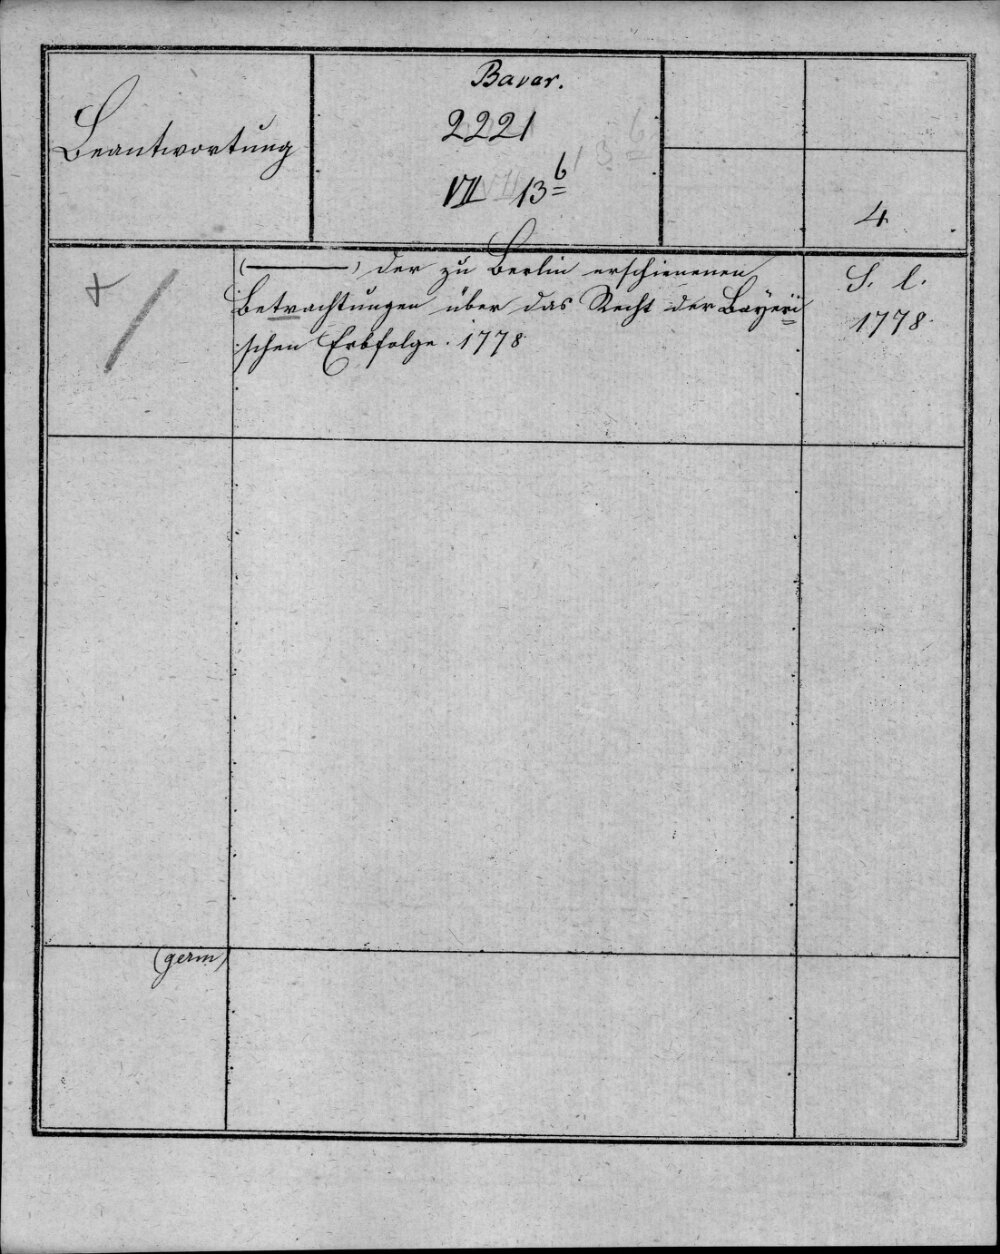 Beantwortung
Bavar.
2221
VII 13 b
4
(———) der zu Berlin erschienenen
Betrachtungen über das Recht der Bayeri=
schen Erbfolge. 1778
S. l.
1778.
(germ)